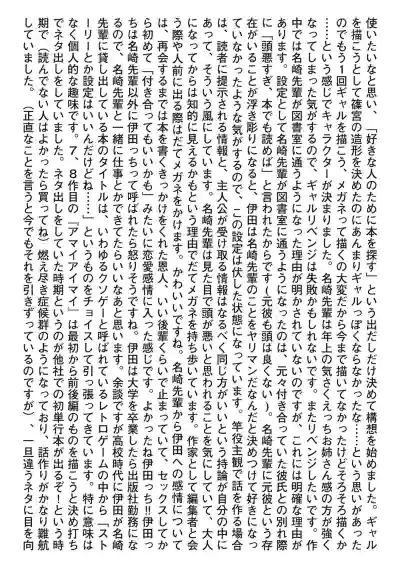 使いたいなと思い、「好きな人のために本を探す」という出だしだけ決めて構想を始めました。ギャル
を描こうとして篠宮の造形を決めたのにあんまりギャルっぽくならなかったな……という思いがあった
のでもう1回ギャルを描こう、メガネって描くの大変だから今まで描いてなかったけどそろそろ描くか
……という感じでキャラクターが決まりました。名崎先輩は年上の気さくえっちお姉さん感の方が強く
なってしまった気がするので、ギャルリベンジは失敗かもしれないです。またリベンジしたいです。作
中では名崎先輩が図書室に通うようになった理由が明かされていないのですが、これには明確な理由が
あります。設定として名崎先輩が図書室に通うようになったのは、元々付き合っていた彼氏との別れ際
に「頭悪すぎ、本でも読めば」と言われたからです(元彼も頭は良くない)。名崎先輩に元彼という存
在がいることが浮き彫りになると、伊田は名崎先輩のことをヤリマンだなんだと決めつけて好きになっ
ていなかったような気がするので、この設定は伏した状態になっています。竿役主観で話を作る場合
は、読者に提示される情報と、主人公が受け取る情報はなるべく同じ方がいいという持論が自分の中に
あって、そういう風にしています。名崎先輩は見た目で頭が悪いと思われることを気にしていて、大人
になってからは知的に見えるかもという理由でだてメガネを持ち歩いています。作家として編集者と会
う際や人前に出る際はだてメガネをかけます。かわいいですね。名崎先輩から伊田への感情について
は、再会するまでは本を書くきっかけをくれた恩人、いい後輩くらいで止まっていて、セックスしてか
ら初めて「付き合ってもいいかも」みたいに恋愛感情に入った感じです。よかったね伊田っち!!伊田っ
ちは名崎先輩以外に伊田っちって呼ばれたら怒りそうですね。伊田は大学を卒業したら出版社勤務にな
るので、名崎先輩と一緒に仕事とかできてたらいいなあと思います。余談ですが高校時代に伊田が名崎
先輩に貸し出している本のタイトルは、いわゆるクソゲーと呼ばれているレトロゲームの中から「スト
ーリーとか設定はいいんだけどね……」というものをチョイスして引っ張ってきています。特に意味は
なく個人的な趣味です。7、8作目の「アマイアイマイ」は最初から前後編のものを描こうと決め打ち
でネタ出しをしていました。ネタ出しをしていた時期というのが他社での初単行本が出るぞ!という時
期で(読んでない人はよかったら買ってね)燃え尽き症候群のようになっており、話作りがかなり難航
していました。(正直なことを言うと今でもそれを引きずっているのですが)、一旦違うネタに目を向